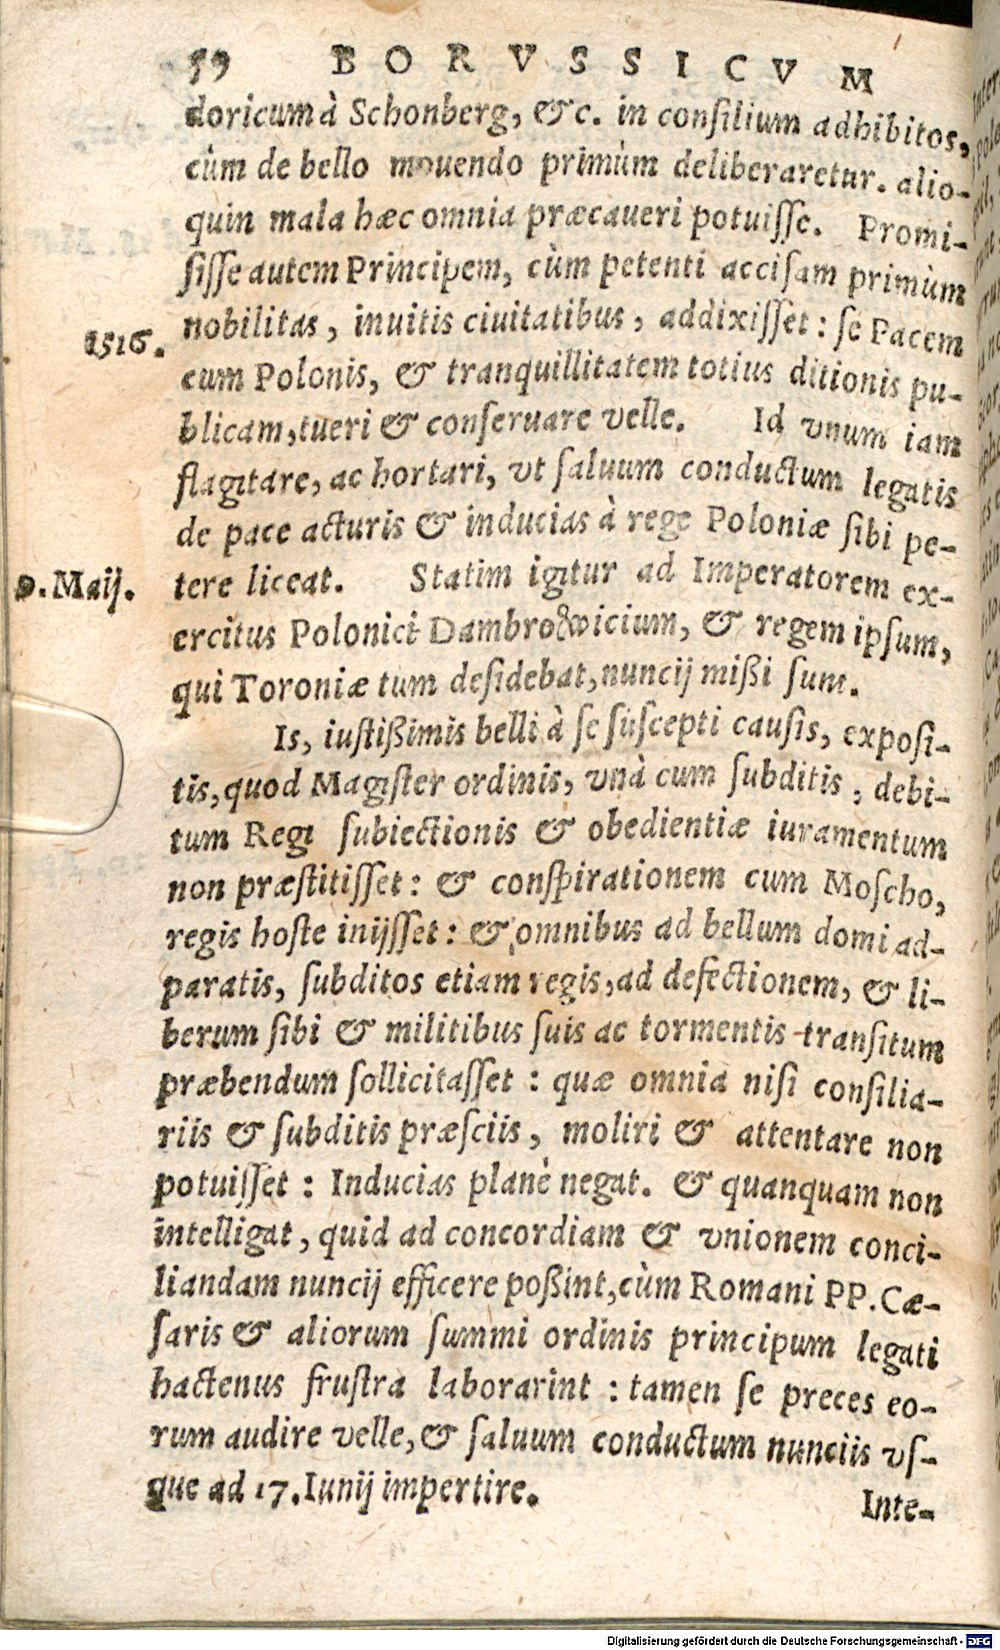 59 BORVSSICVM
doricum à Schonberg, &c. in conſilium adhibitos,
cùm de bello mouendo primùm deliberaretur. alio-
quin mala hæc omnia præcaueri potuiſſe. Promi-
ſiſſe autem Principem, cùm petenti acciſam primùm
nobilitas, inuitis ciuitatibus, addixiſſet: ſe Pacem
1516.
cum Polonis, & tranquillitatem totius ditionis pu-
blicam, tueri & conſeruare velle. Id vnum iam
flagitare, ac hortari, vt ſaluum conductum legatis
de pace acturis & inducias à rege Poloniæ ſibi pe-
tere liceat. Statim igitur ad Imperatorem ex-
9. Maij.
ercitus Polonici & regem ipſum,
qui Toroniæ tum deſidebat, nuncij mißi ſunt.
Is, iuſtißimis belli à ſe ſuſcepti cauſis, expoſi-
tis, quod Magiſter ordinis, vnà cum ſubditis, debi-
tum Regi ſubiectionis & obedientiæ iuramentum
non præſtitiſſet: & conſpirationem cum Moſcho,
regis hoſte inijſſet: & omnibus ad bellum domi ad-
paratis, ſubditos etiam regis, ad defectionem, & li-
berum ſibi & militibus ſuis ac tormentis tranſitum
præbendum ſollicitaſſet: quæ omnia niſi conſilia-
riis & ſubditis præſciis, moliri & attentare non
potuiſſet: Inducias planè negat. & quanquam non
intelligat, quid ad concordiam & vnionem conci-
liandam nuncij efficere poßint, cùm Romani PP. Cæ-
ſaris & aliorum ſummi ordinis principum legati
hactenus fruſtra laborarint: tamen ſe preces eo-
rum audire velle, & ſaluum conductum nunciis vſ-
que ad 17. Iunij impertire.
Inte-
Digitalisierung gefördert durch die Deutsche Forschungsgemeinschaft - DFG